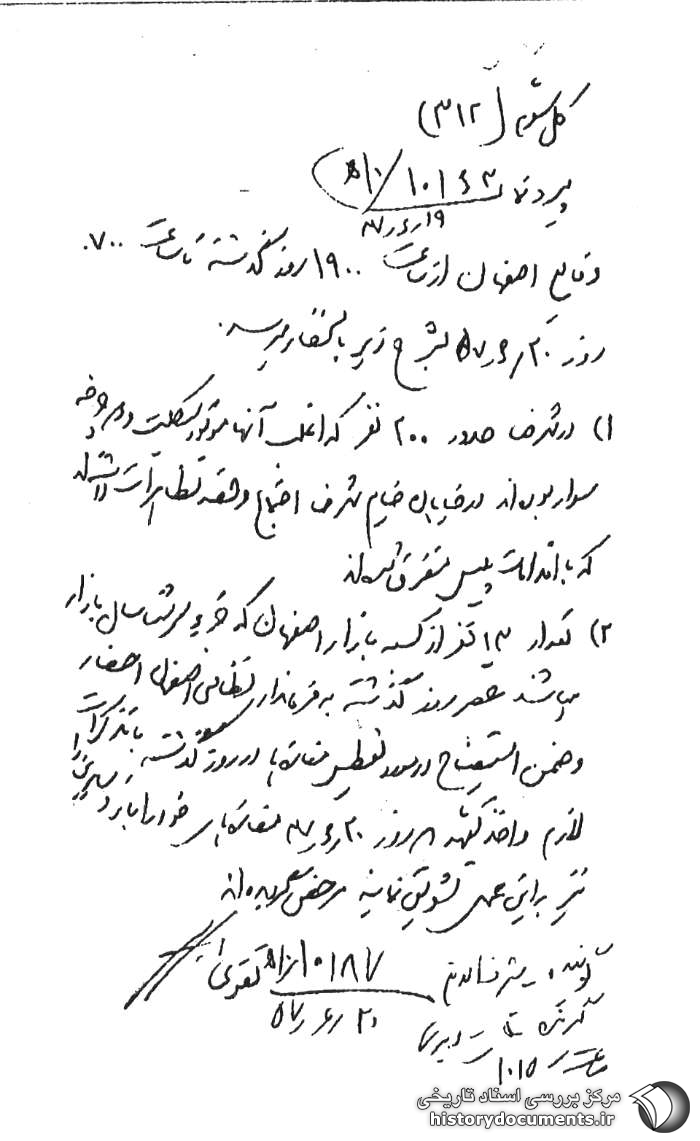 کل سوم (۳۱۲)
پیرو شماره ۱۰۱۶۳/۱۰ھ
۱۹ر۶ر۳۷
وقایع اصفهان از ساعت ۱۹۰۰ روز گذشته تا ساعت ۰۷۰۰
روز ۲۰ر۶ر۵۷ بشرح زیر باستحضار میرسد.
۱) در شهرضا حدود ۲۰۰ نفر که اغلب آنها موتورسیکلت و دوچرخه
سوار بوده‌اند در خیابان خیام شهرضا اجتماع و قصد تظاهرات داشته‌اند
که با اقدامات پلیس متفرق شده‌اند
۲) تعداد ۱۳ نفر از کسبه بازار اصفهان که جزء سرشناسان بازار
میباشند عصر روز گذشته به فرمانداری نظامی اصفهان احضار
و ضمن استیضاح در مورد تعطیل مغازه‌ها در روز گذشته با تذکرات
لازم و اخذ تعهد که روز ۲۰ر۶ر۳۷ مغازه‌های خود را باز و سایرین را
نیز براین عمل تشویق نمایند مرخص گردیده‌اند
۱۰۱۸۷/۱۰ھ تقوی
۲۰ر۶ر۵۷
گوینده
گیرنده
ساعت ۱۰۱۵
مرکز بررسی اسناد تاریخی
historydocuments.ir